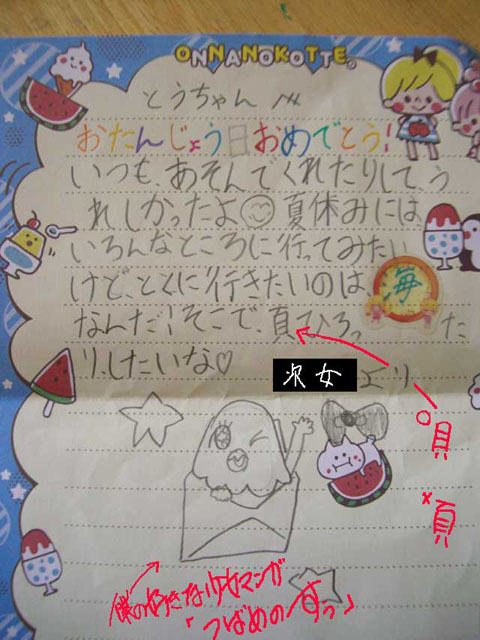 ONNANOKOTTE
とうちゃんへ
おたんじょう日おめでとう!
いつも、あそんでくれたりして、う
れしかったよ 夏休みには、
いろんなところに行ってみたい
けど、とくに行きたいのは海
なんだ!そこで、頁ひろっ た
り、したいな♡
次女 エリ
○貝
×頁
僕の好きな少女マンガ
「つばめの一すっ」